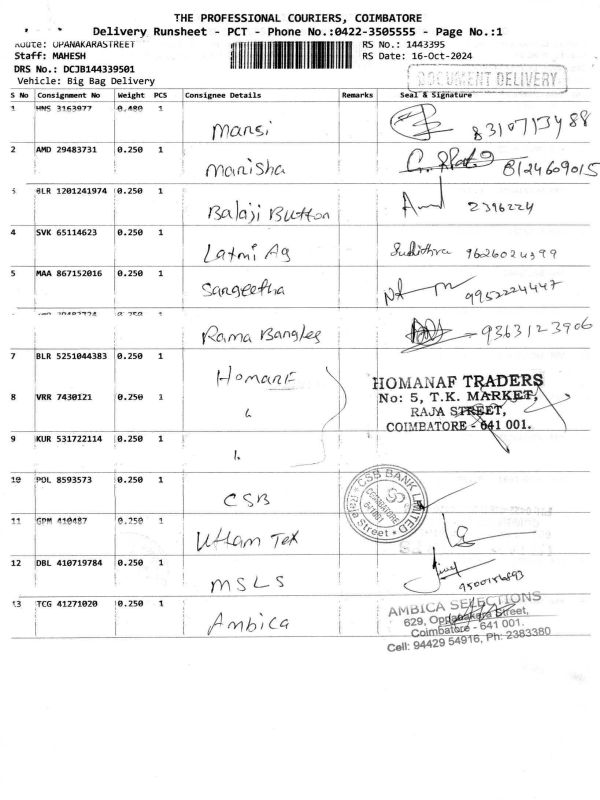 THE PROFESSIONAL COURIERS, COIMBATORE
Delivery Runsheet - PCT - Phone No.:0422-3505555 - Page No.:1
Route: OPANAKARASTREET RS No.: 1443395
Staff: MAHESH RS Date: 16-Oct-2024
DRS No.: DCJB144339501
Vehicle: Big Bag Delivery
DOCUMENT DELIVERY
S No Consignment No Weight PCS Consignee Details Remarks Seal & Signature
1 HNS 3163977 0.480 1
Mansi
2 AMD 29483731 0.250 1
Manisha 8124609015
3 BLR 1201241974 0.250 1
Balaji Button 2396224
4 SVK 65114623 0.250 1
Laxmi Ag Sudithra 9626024399
5 MAA 867152016 0.250 1
Sangeetha 9952224447
0.250 1
Rama Bangles 9363123906
7 BLR 5251044383 0.250 1
Homanf
HOMANAF TRADERS
No: 5, T.K. MARKET,
RAJA STREET,
COIMBATORE - 641 001.
8 VRR 7430121 0.250 1
9 KUR 531722114 0.250 1
10 POL 8593573 0.250 1
CSB
CSB BANK LIMITED
COIMBATORE
641001
Street
11 GPM 410487 0.250 1
Uttam Tex
12 DBL 410719784 0.250 1
MSLS
13 TCG 41271020 0.250 1
Ambica
AMBICA SELECTIONS
629, Oppanakara Street,
Coimbatore - 641 001.
Cell: 94429 54916, Ph: 2383380